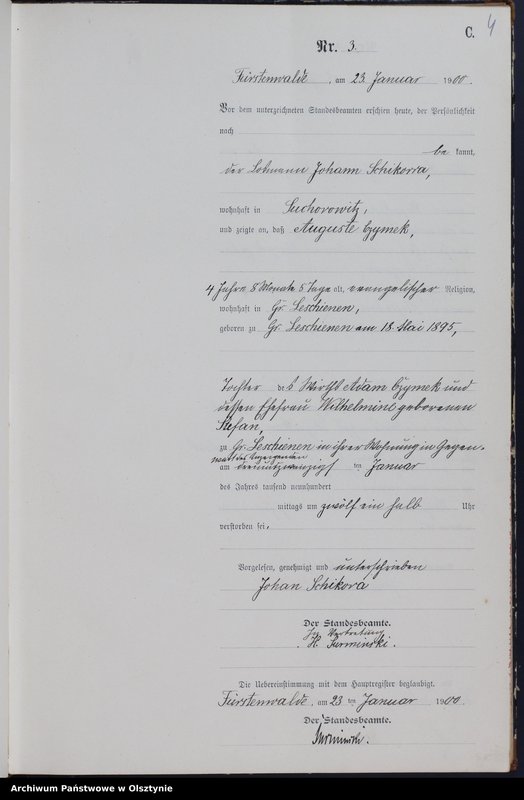 C. 4
Nr. 3.
Fürstenwalde, am 23. Januar 1900.
Vor dem unterzeichneten Standesbeamten erschien heute, der Persönlichkeit
nach
be kannt,
der Lohmann Johann Schikorra,
wohnhaft in Suchorowitz,
und zeigte an, daß Auguste Czymek,
4 Jahre 8 Monate 5 Tage alt, evangelischer Religion,
wohnhaft in Gr. Leschienen,
geboren zu Gr. Leschienen am 18. Mai 1895,
Tochter des Wirths Adam Czymek und
dessen Ehefrau Wilhelmine geborenen
Stefan,
zu Gr. Leschienen in ihrer Wohnung in Gegen-
wart des Anzeigenden
am dreiundzwanzigsten Januar
des Jahres tausend neunhundert
mittags um zwölf ein halb Uhr
verstorben sei.
Vorgelesen, genehmigt und unterschrieben
Johan Schikora
Der Standesbeamte.
In Vertretung
H. Surminski.
Die Uebereinstimmung mit dem Hauptregister beglaubigt.
Fürstenwalde, am 23 ten Januar 1900.
Der Standesbeamte.
Surminski.
Archiwum Państwowe w Olsztynie